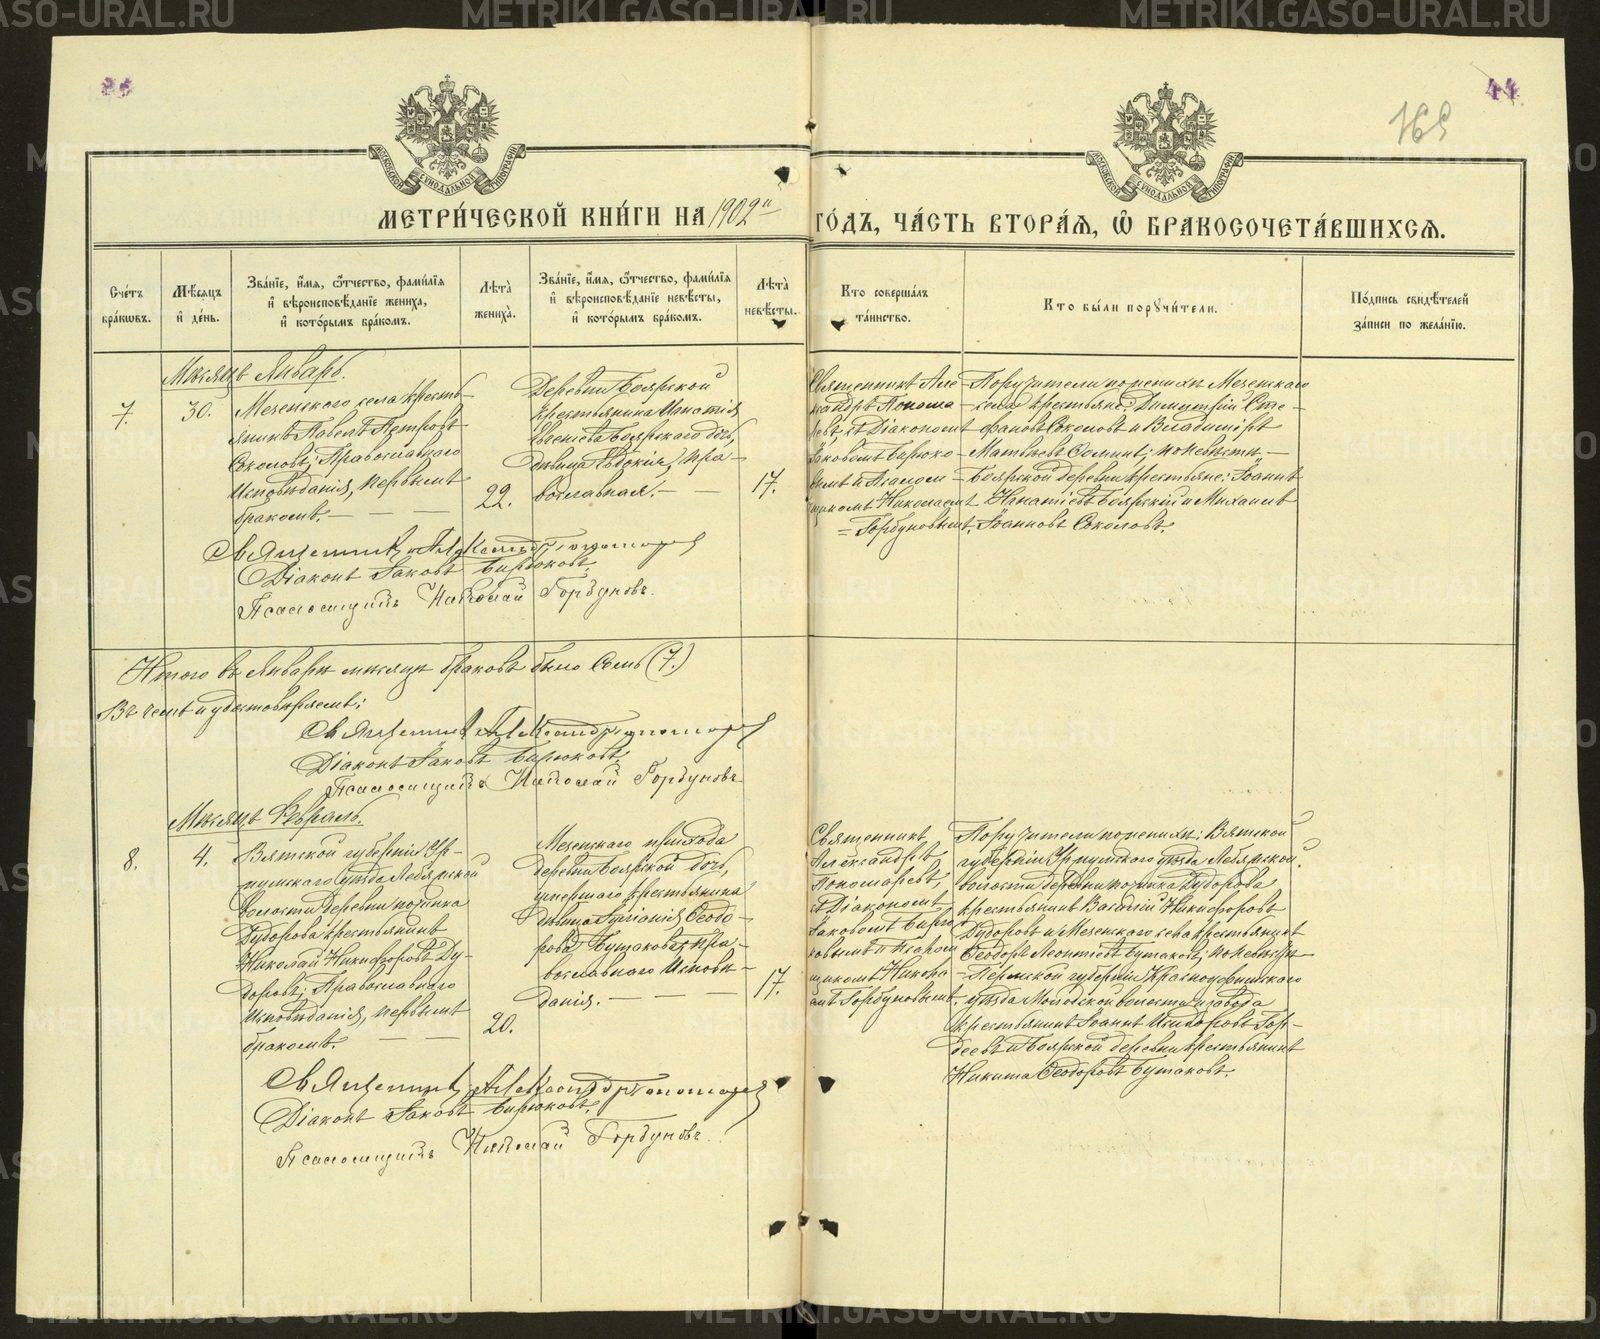 44
169
МОСКОВСКОЙ СѴНОДАЛЬНОЙ ТИПОГРАФІИ
МОСКОВСКОЙ СѴНОДАЛЬНОЙ ТИПОГРАФІИ
МЕТРИ́ЧЕСКОЙ КНИ́ГИ НА 1902й ГО́ДЪ, ЧА́СТЬ ВТОРА́Я, Ѡ҆ БРАКОСОЧЕТА́ВШИХСЯ.
Сче́тъ бра́кѡвъ.
Мѣ́сяцъ и҆ де́нь.
Зва́нїе, и҆́мя, ѻ҆́тчество, фами́лїя и҆ вѣроисповѣ́данїе жениха̀, и҆ кото́рымъ бра́комъ.
Лѣта̀ жениха̀.
Зва́нїе, и҆́мя, ѻ҆́тчество, фами́лїя и҆ вѣроисповѣ́данїе невѣ́сты, и҆ кото́рымъ бра́комъ.
Лѣта̀ невѣ́сты.
Кто соверша́лъ та́инство.
Кто бы́ли порꙋчи́тели.
По́дпись свидѣ́телей за́писи по жела́нїю.
Мѣсяцъ Январь.
7.
30.
Мезенскаго села кресть-
янинъ Павелъ Петровъ
Соколовъ, Православнаго
Исповѣданія, первымъ
бракомъ.
22.
Деревни Боярской
крестьянина Игнатія
Евсеіева Боярскаго дочь,
дѣвица Евдокія, пра-
вославная.
17.
Священникъ Але-
ксандръ Понома-
ревъ, съ Діакономъ
Іаковомъ Бирюко-
вымъ и Псалом-
щикомъ Николаемъ
Горбуновымъ.
Поручители по женихѣ: Мезенскаго
села крестьяне: Димитрій Сте-
фановъ Соколовъ и Владиміръ
Матвѣевъ Ѳоминъ; по невѣстѣ:
Боярской деревни крестьяне: Іоаннъ
Игнатіевъ Боярскій и Михаилъ
Іоанновъ Соколовъ.
Священникъ Александръ Пономаревъ
Діаконъ Іаковъ Бирюковъ.
Псаломщикъ Николай Горбуновъ.
Итого въ Январѣ мѣсяцѣ браковъ было Семь (7.)
Въ чемъ и удостовѣряемъ:
Священникъ Александръ Пономаревъ
Діаконъ Іаковъ Бирюковъ.
Псаломщикъ Николай Горбуновъ
Мѣсяцъ Февраль.
8.
4.
Вятской губерніи Ур-
жумскаго уѣзда Лебяжской
волости деревни починка
Дудорова крестьянинъ
Николай Никифоровъ Ду-
доровъ, Православнаго
Исповѣданія, первымъ
бракомъ.
20.
Мезенскаго прихода
деревни Боярской дочь,
умершаго крестьянина
дѣвица Іуліанія Ѳеодо-
рова Бутакова, пра-
вославнаго Исповѣ-
данія.
17.
Священникъ
Александръ
Пономаревъ,
съ Діакономъ
Іаковомъ Бирю-
ковымъ и Псалом-
щикомъ Никола-
емъ Горбуновымъ.
Поручители по женихѣ: Вятской
губерніи Уржумскаго уѣзда Лебяжской
волости деревни починка Дудорова
крестьянинъ Василій Никифоровъ
Дудоровъ и Мезенскаго села крестьянинъ
Ѳеодоръ Леонтіевъ Бутаковъ; по невѣстѣ
Пермской губерніи Красноуфимскаго
уѣзда Молебской волости и завода
крестьянинъ Іоаннъ Исидоровъ Гор-
деевъ и Боярской деревни крестьянинъ
Никита Ѳеодоровъ Бутаковъ.
Священникъ Александръ Пономаревъ
Діаконъ Іаковъ Бирюковъ.
Псаломщикъ Николай Горбуновъ.
METRIKI.GASO-URAL.RU